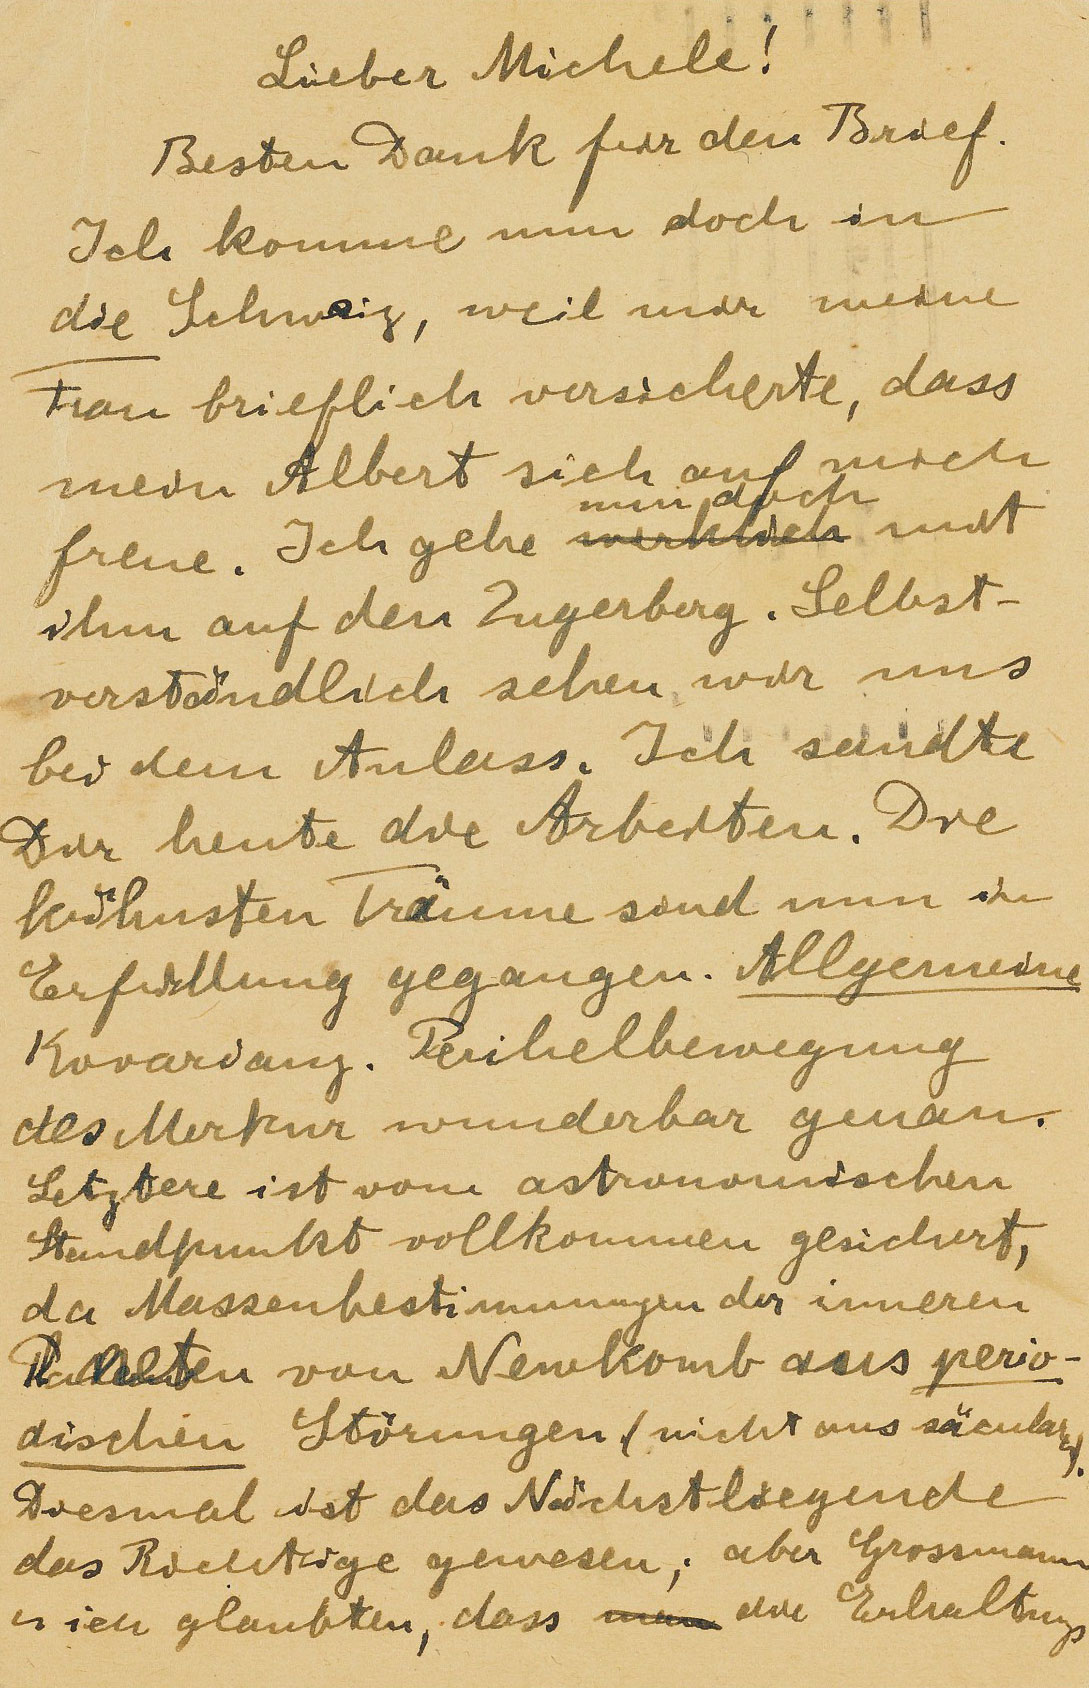 Lieber Michele!
Besten Dank für den Brief.
Ich komme nun doch in
die Schweiz, weil mir meine
Frau brieflich versicherte, dass
mein Albert sich auf mich
nun doch
freue. Ich gehe wirklich mit
ihm auf den Zugerberg. Selbst-
verständlich sehen wir uns
bei dem Anlass. Ich sandte
Dir heute die Arbeiten. Die
kühnsten Träume sind nun in
Erfüllung gegangen. Allgemeine
Kovarianz. Perihelbewegung
des Merkur wunderbar genau.
Letztere ist vom astronomischen
Standpunkt vollkommen gesichert,
da Massenbestimmungen der inneren
Planeten von Newkomb aus perio-
dischen Störungen (nicht aus säcularen).
Diesmal ist das Nächstliegende
das Richtige gewesen; aber Grossmann
u ich glaubten, dass man die Erhaltungs